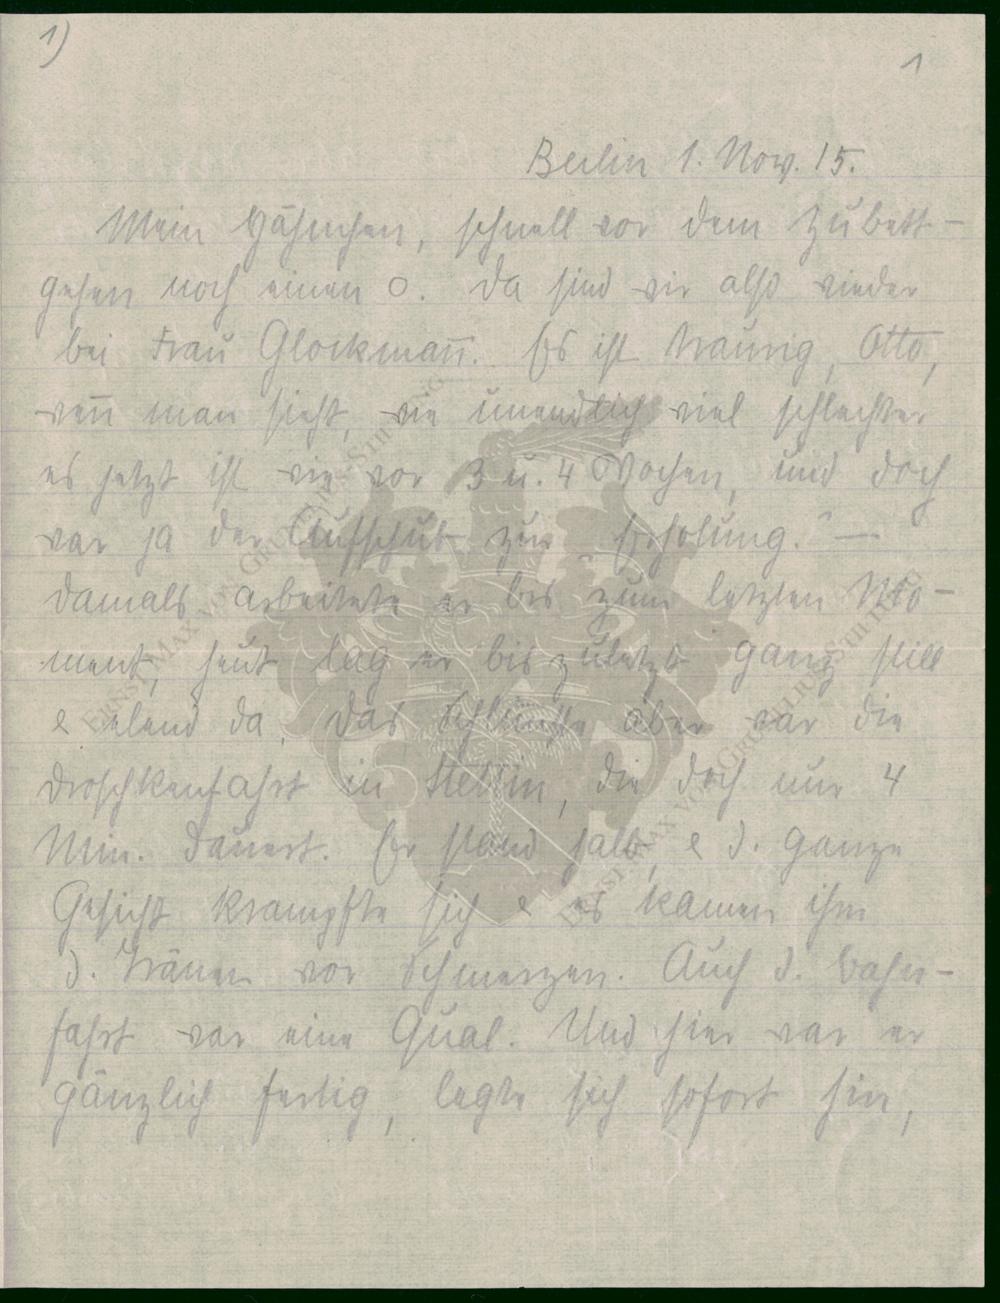 1)
1
Berlin 1. Nov. 15.
Mein Hähnchen, schnell vor dem Zubett-
gehen noch einen o. Da sind wir also wieder
bei Frau Glockman̅. Es ist traurig, Otto,
wen̅ man sieht, wie unendlich viel schlechter
es jetzt ist wie vor 3 u. 4 Wochen, und doch
war ja der Aufschub zur "Erholung." —
Damals arbeitete er bis zum letzten Mo-
ment, heut lag er bis zuletzt ganz still
& elend da. Das Schlimmste aber war die
Droschkenfahrt in Stettin, die doch nur 4
Min. dauert. Er stand halb, & d. ganze
Gesicht krampfte sich & es kamen ihm
d. Tränen vor Schmerzen. Auch d. Bahn-
fahrt war eine Qual. Und hier war er
gänzlich fertig, legte sich sofort hin,
ERNST MAX VON GRUNELIUS-STIFTUNG
ERNST MAX VON GRUNELIUS-STIFTUNG